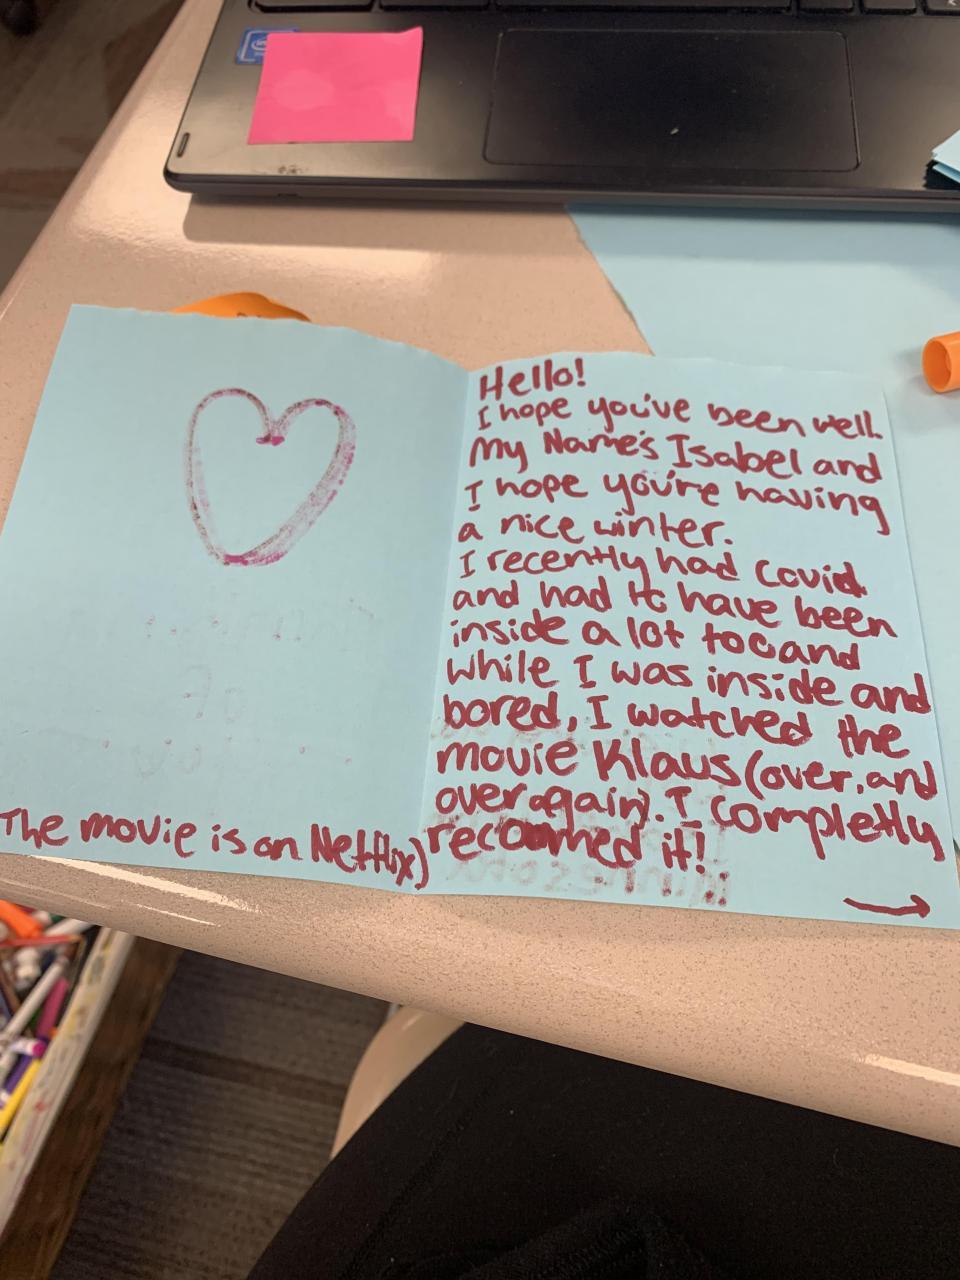 Hello!
I hope you've been well.
My Name's Isabel and
I hope you're having
a nice winter.
I recently had Covid
and had to have been
inside a lot too and
while I was inside and
bored, I watched the
movie Klaus (over, and
over again). I completly
recommed it!
The movie is on Netflix)